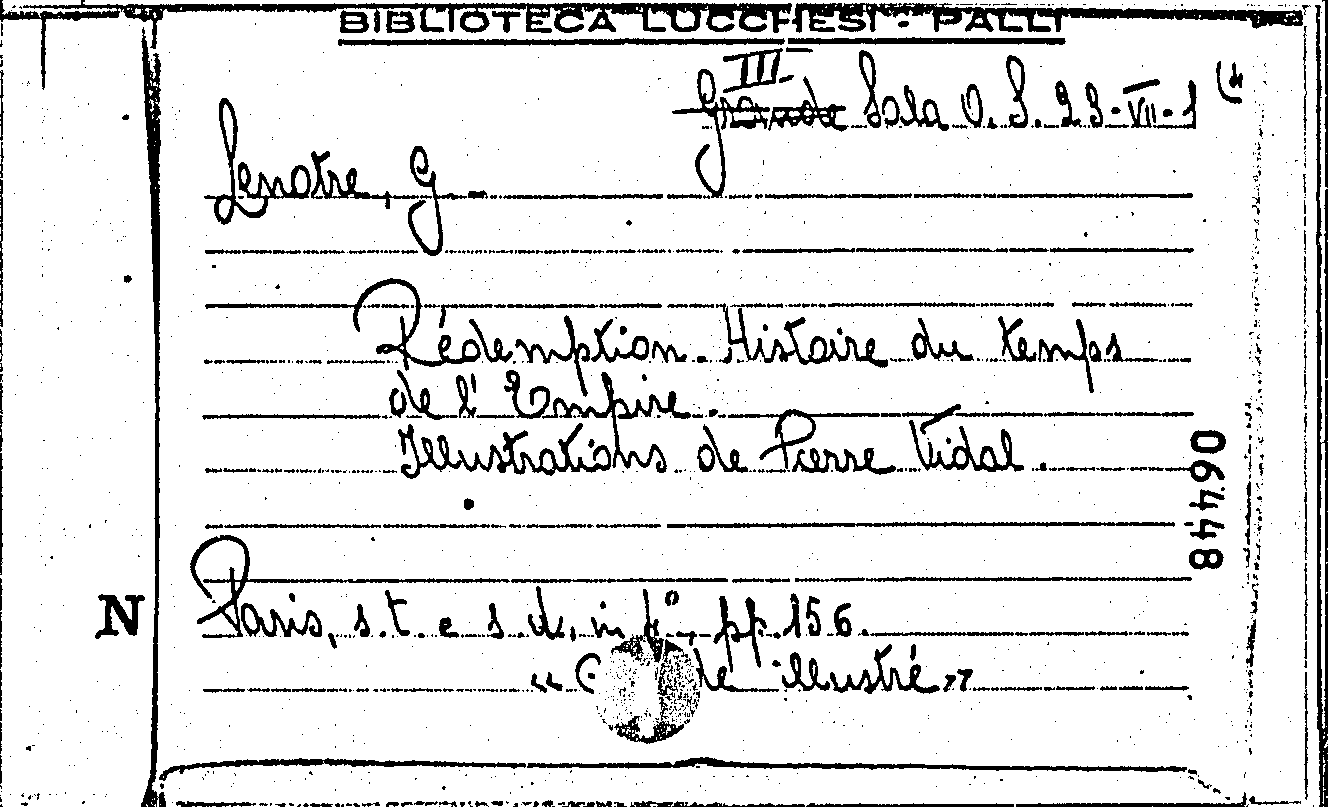 BIBLIOTECA LUCCHESI - PALLI
III
Grande Sala O. S. 23-VII-1 (4
Lenotre, G.-
Rédemption. Histoire du temps
de l'Empire.
Illustrations de Pierre Vidal.
06448
N
Paris, s.t. e s.d., in f°, pp. 156.
illustré»